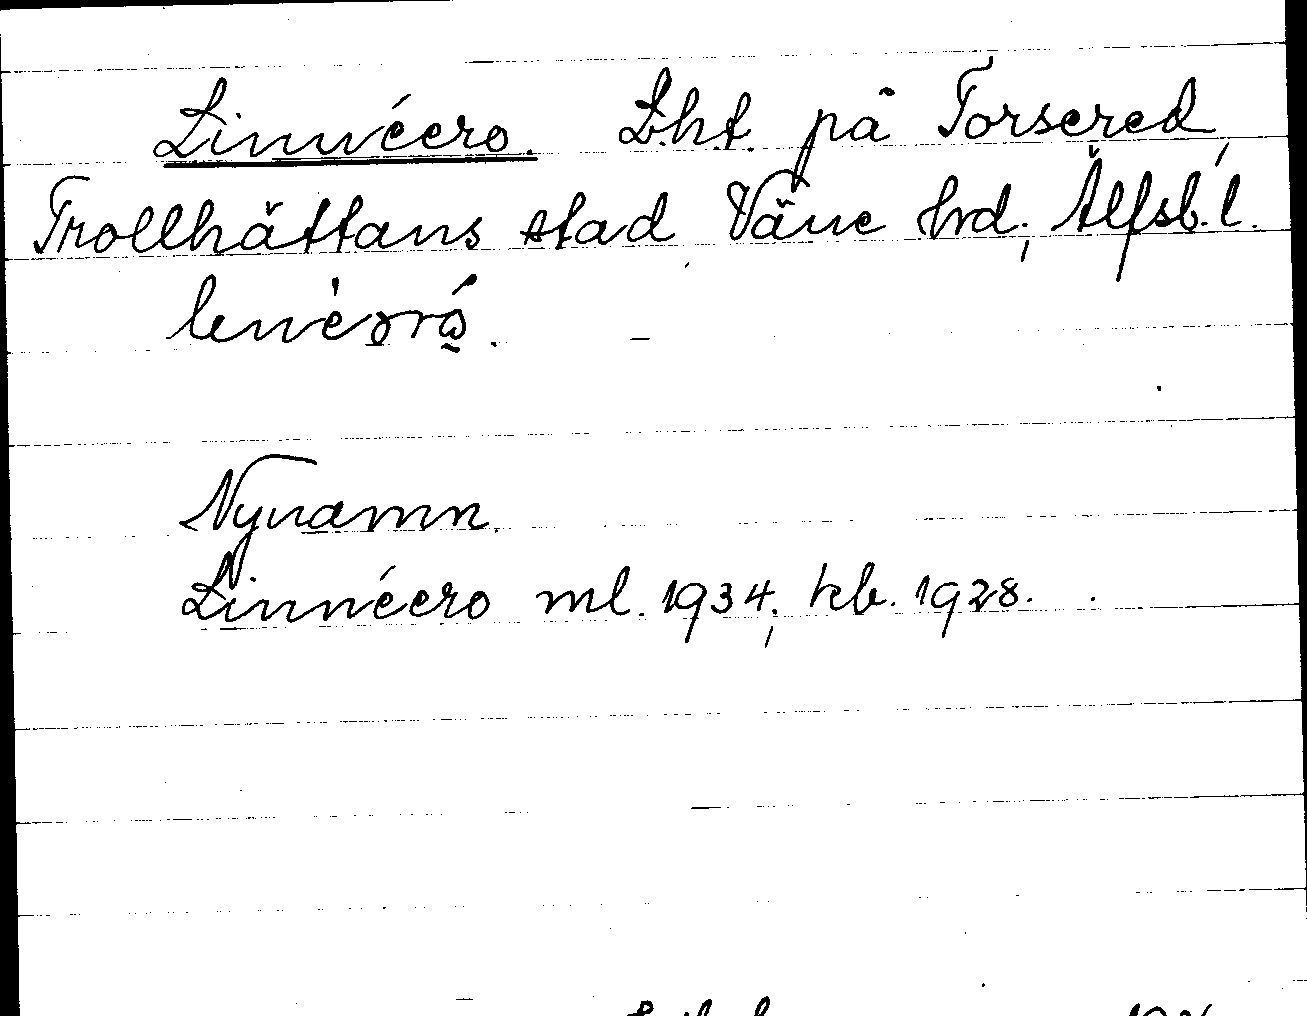 Linnéero. Lht. på Torsered,
Trollhättans stad Väne hrd; Älfsb. l.
Nynamn.
Linnéero ml. 1934; kb. 1928.